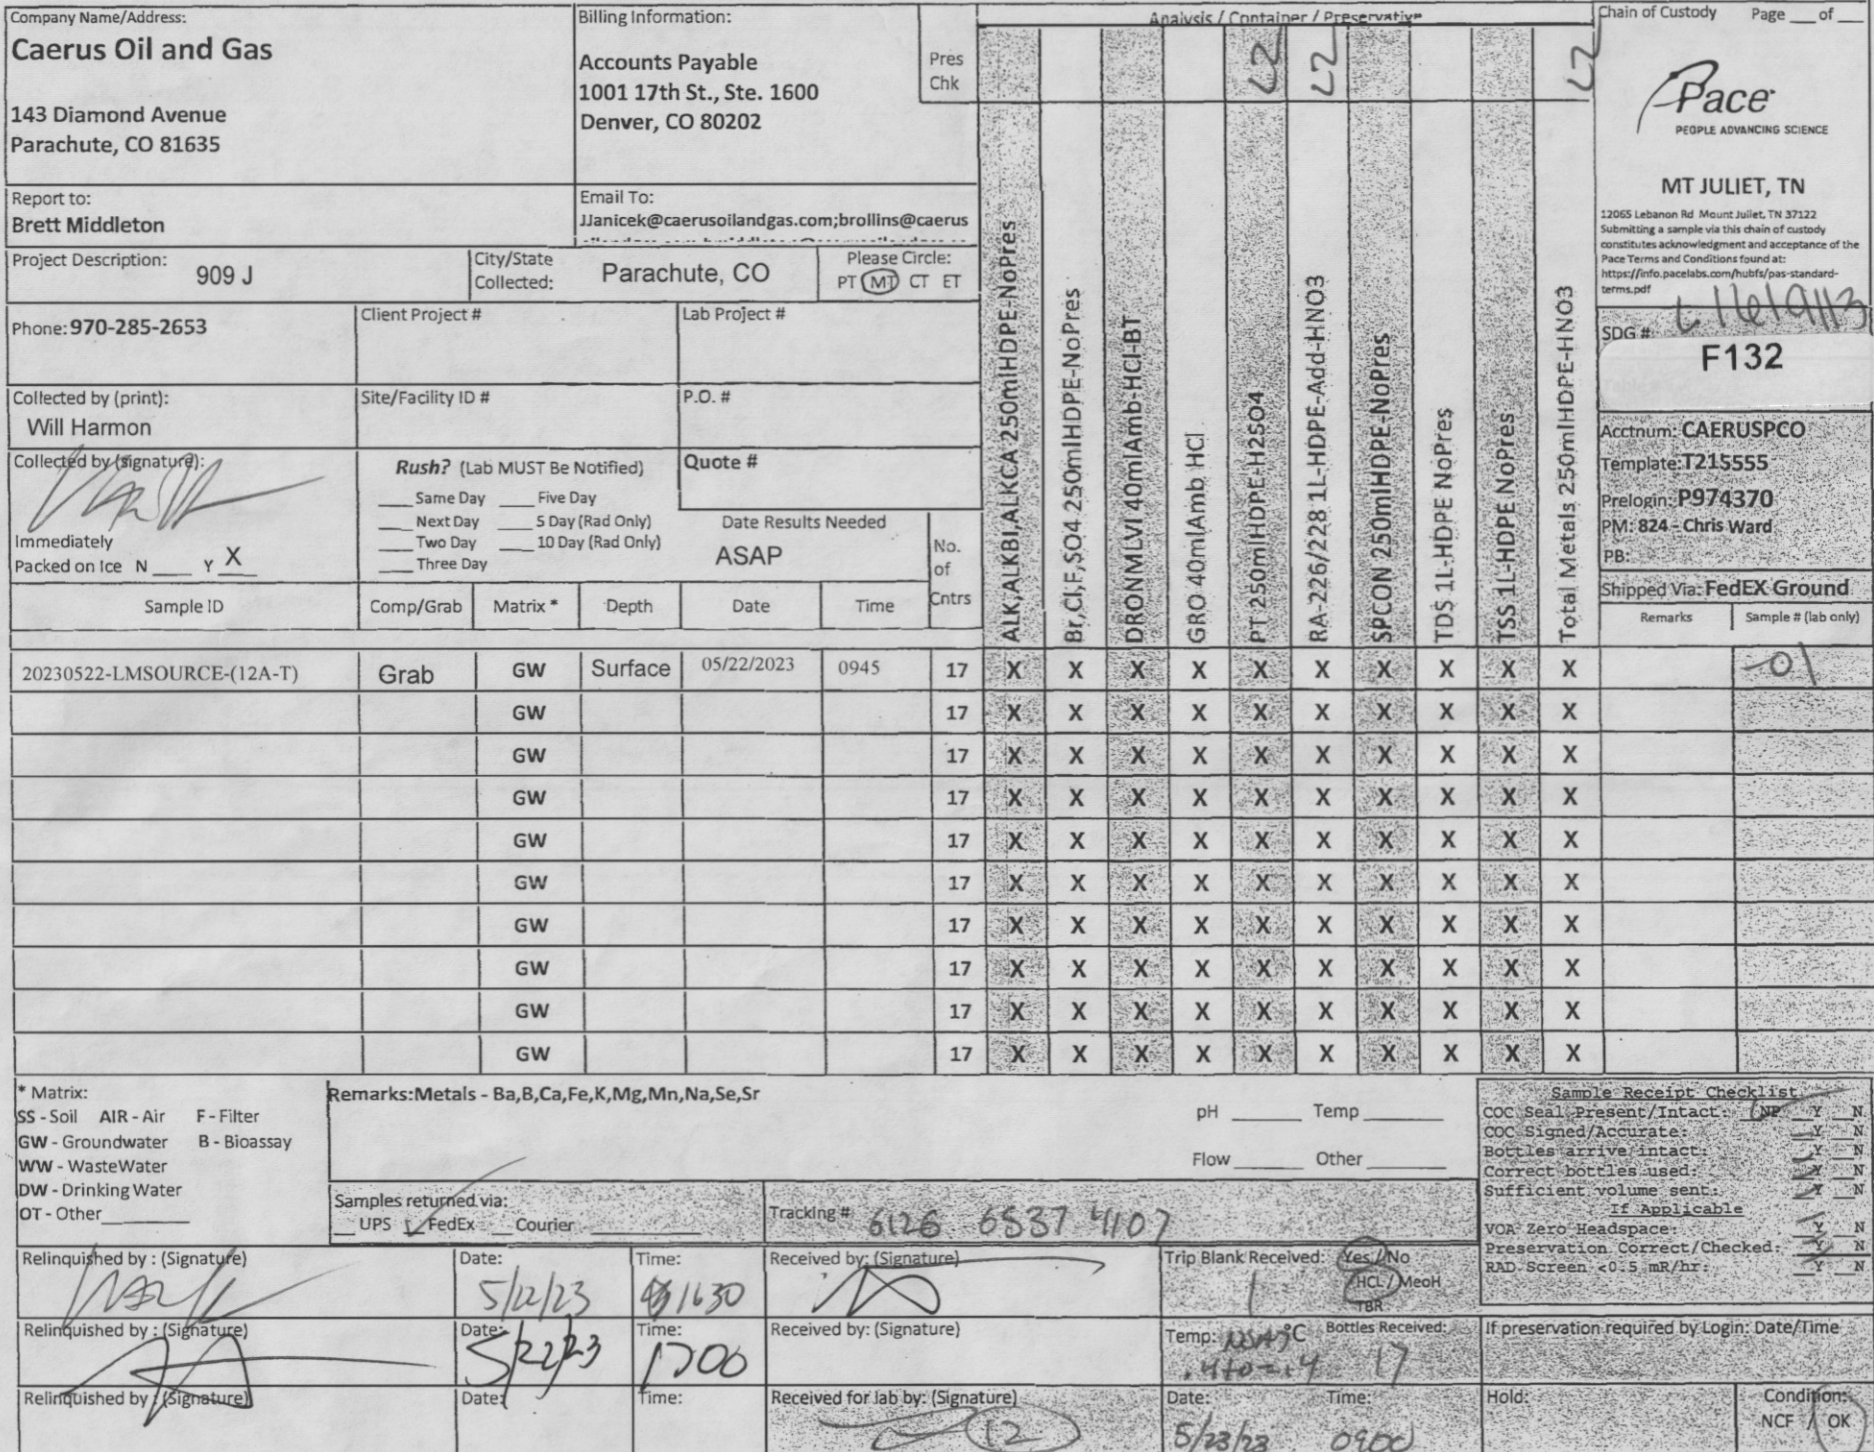 Company Name/Address:
Caerus Oil and Gas
143 Diamond Avenue
Parachute, CO 81635
Billing Information:
Accounts Payable
1001 17th St., Ste. 1600
Denver, CO 80202
Pres
Chk
Analysis / Container / Preservative
Chain of Custody Page ___ of ___
Pace
PEOPLE ADVANCING SCIENCE
MT JULIET, TN
12065 Lebanon Rd Mount Juliet, TN 37122
Submitting a sample via this chain of custody
constitutes acknowledgment and acceptance of the
Pace Terms and Conditions found at:
https://info.pacelabs.com/hubfs/pas-standard-
terms.pdf
Report to:
Brett Middleton
Email To:
JJanicek@caerusoilandgas.com;brollins@caerus
Project Description:
909 J
City/State
Collected:
Parachute, CO
Please Circle:
PT MT CT ET
Phone: 970-285-2653
Client Project #
Lab Project #
SDG #
F132
Collected by (print):
Will Harmon
Site/Facility ID #
P.O. #
Acctnum: CAERUSPCO
Template: T215555
Prelogin: P974370
PM: 824 - Chris Ward
PB:
Shipped Via: FedEX Ground
Collected by (signature):
Rush? (Lab MUST Be Notified)
___ Same Day ___ Five Day
___ Next Day ___ 5 Day (Rad Only)
___ Two Day ___ 10 Day (Rad Only)
___ Three Day
Quote #
Date Results Needed
ASAP
Immediately
Packed on Ice N ___ Y X
No.
of
Cntrs
ALK,ALKBI,ALKCA 250mlHDPE-NoPres
Br,Cl,F,SO4 250mlHDPE-NoPres
DRONMLVI 40mlAmb-HCl-BT
GRO 40mlAmb HCl
PT 250mlHDPE-H2SO4
RA-226/228 1L-HDPE-Add-HNO3
SPCON 250mlHDPE-NoPres
TDS 1L-HDPE NoPres
TSS 1L-HDPE NoPres
Total Metals 250mlHDPE-HNO3
Sample ID Comp/Grab Matrix * Depth Date Time Remarks Sample # (lab only)
20230522-LMSOURCE-(12A-T) Grab GW Surface 05/22/2023 0945 17 X X X X X X X X X X -01
GW 17 X X X X X X X X X X
GW 17 X X X X X X X X X X
GW 17 X X X X X X X X X X
GW 17 X X X X X X X X X X
GW 17 X X X X X X X X X X
GW 17 X X X X X X X X X X
GW 17 X X X X X X X X X X
GW 17 X X X X X X X X X X
GW 17 X X X X X X X X X X
* Matrix:
SS - Soil AIR - Air F - Filter
GW - Groundwater B - Bioassay
WW - WasteWater
DW - Drinking Water
OT - Other ___
Remarks: Metals - Ba,B,Ca,Fe,K,Mg,Mn,Na,Se,Sr
pH ___ Temp ___
Flow ___ Other ___
Sample Receipt Checklist
COC Seal Present/Intact: NP Y N
COC Signed/Accurate: Y N
Bottles arrive intact: Y N
Correct bottles used: Y N
Sufficient volume sent: Y N
If Applicable
VOA Zero Headspace: Y N
Preservation Correct/Checked: Y N
RAD Screen <0.5 mR/hr: Y N
Samples returned via:
___ UPS ___ FedEx ___ Courier ___
Tracking # 6126 6537 4107
Relinquished by : (Signature)
Date:
5/22/23
Time:
1630
Received by: (Signature)
Trip Blank Received: Yes / No
1
HCL / MeoH
TBR
Relinquished by : (Signature)
Date:
5/22/23
Time:
1700
Received by: (Signature)
Temp: °C
.4+0=.4
Bottles Received:
17
If preservation required by Login: Date/Time
Relinquished by : (Signature)
Date:
Time:
Received for lab by: (Signature)
12
Date:
5/23/23
Time:
0900
Hold:
Condition:
NCF / OK